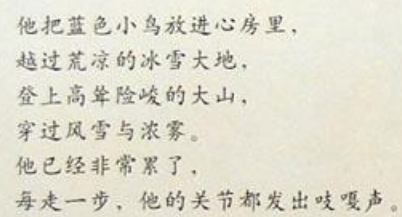 他把蓝色小鸟放进心房里，
越过荒凉的冰雪大地，
登上高耸险峻的大山，
穿过风雪与浓雾。
他已经非常累了，
每走一步，他的关节都发出吱嘎声。